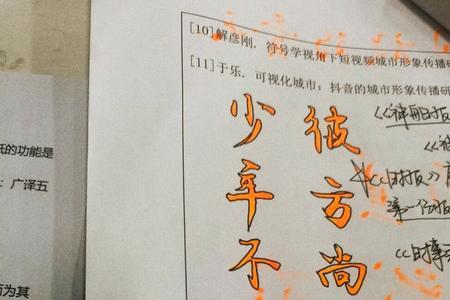 [10]解彦刚. 符号学视角下短视频城市形象传播研
[11]于乐. 可视化城市：抖音的城市形象传播研
彼方尚
少年不
《时报》
第一份报
《时事
的功能是
：广泽五
为其